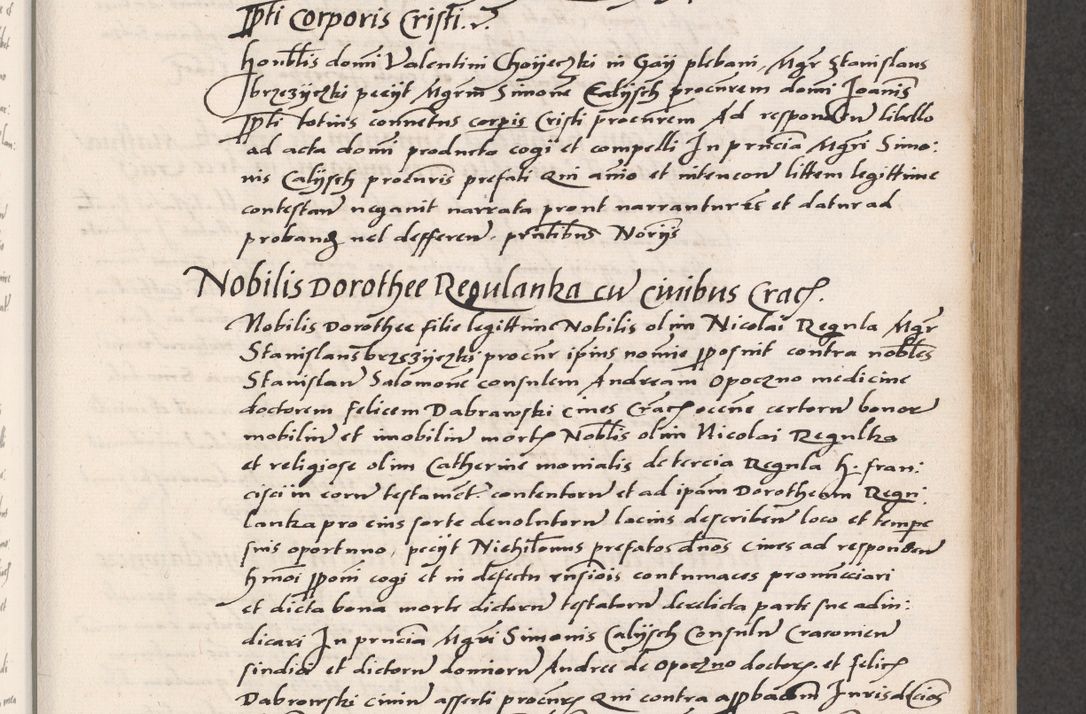 Ppti Corporis Cristi.
honblis domi Valentini Choijeczki in Gaij plebani, Mgr Stanislaus
brzezijczki pecijt Mgrm Simone Calijsch procurem domi Joanis
Ppti totius conuetus corpis Cristi procurem Ad responden libello
ad acta domi producto cogi et compelli In prncia Mgri Simo:
nis Calijsch procuris prefati Qui aio et intencon littem legittime
contestan negauit narrata prout narrantur et datur ad
proband uel defferen. prntibus Norijs
Nobilis Dorothee Regulanka cu ciuibus Crac.
Nobilis Dorothee filie legittime Nobilis olim Nicolai Regula Mgr
Stanislaus brzezijczki procur ipius nomie pposuit contra nobles
Stanislau Salomone consulem Andream Opoczno medicine
doctorem Felicem Dabrawski ciues Crac occne certoru bonor
mobiliu et imobiliu mort Noblis olim Nicolai Regulka
et religiose olim Catherine monialis de tercia Regula h. fran:
cisci in eoru testamet contentoru et ad ipam Dorotheam Regu:
lanka pro eius sorte deuolutoru lacius describen loco et tempe
suis oportuno, pecijt Nichilomus prefatos dnos ciues ad responden
hmoi ppom cogi et in defectu rnsiois contumaces pronucciari
et dicta bona morte dictoru testatoru derelicta parti sue adiu:
dicari In prncia Mgri Simonis Calijsch Consulu Cracouien
sindici et dictoru dominoru Andree de Opoczno doctor et Felic
Dabrowski ciuiu asserti procur Qui contra approbacom Jurisdicois